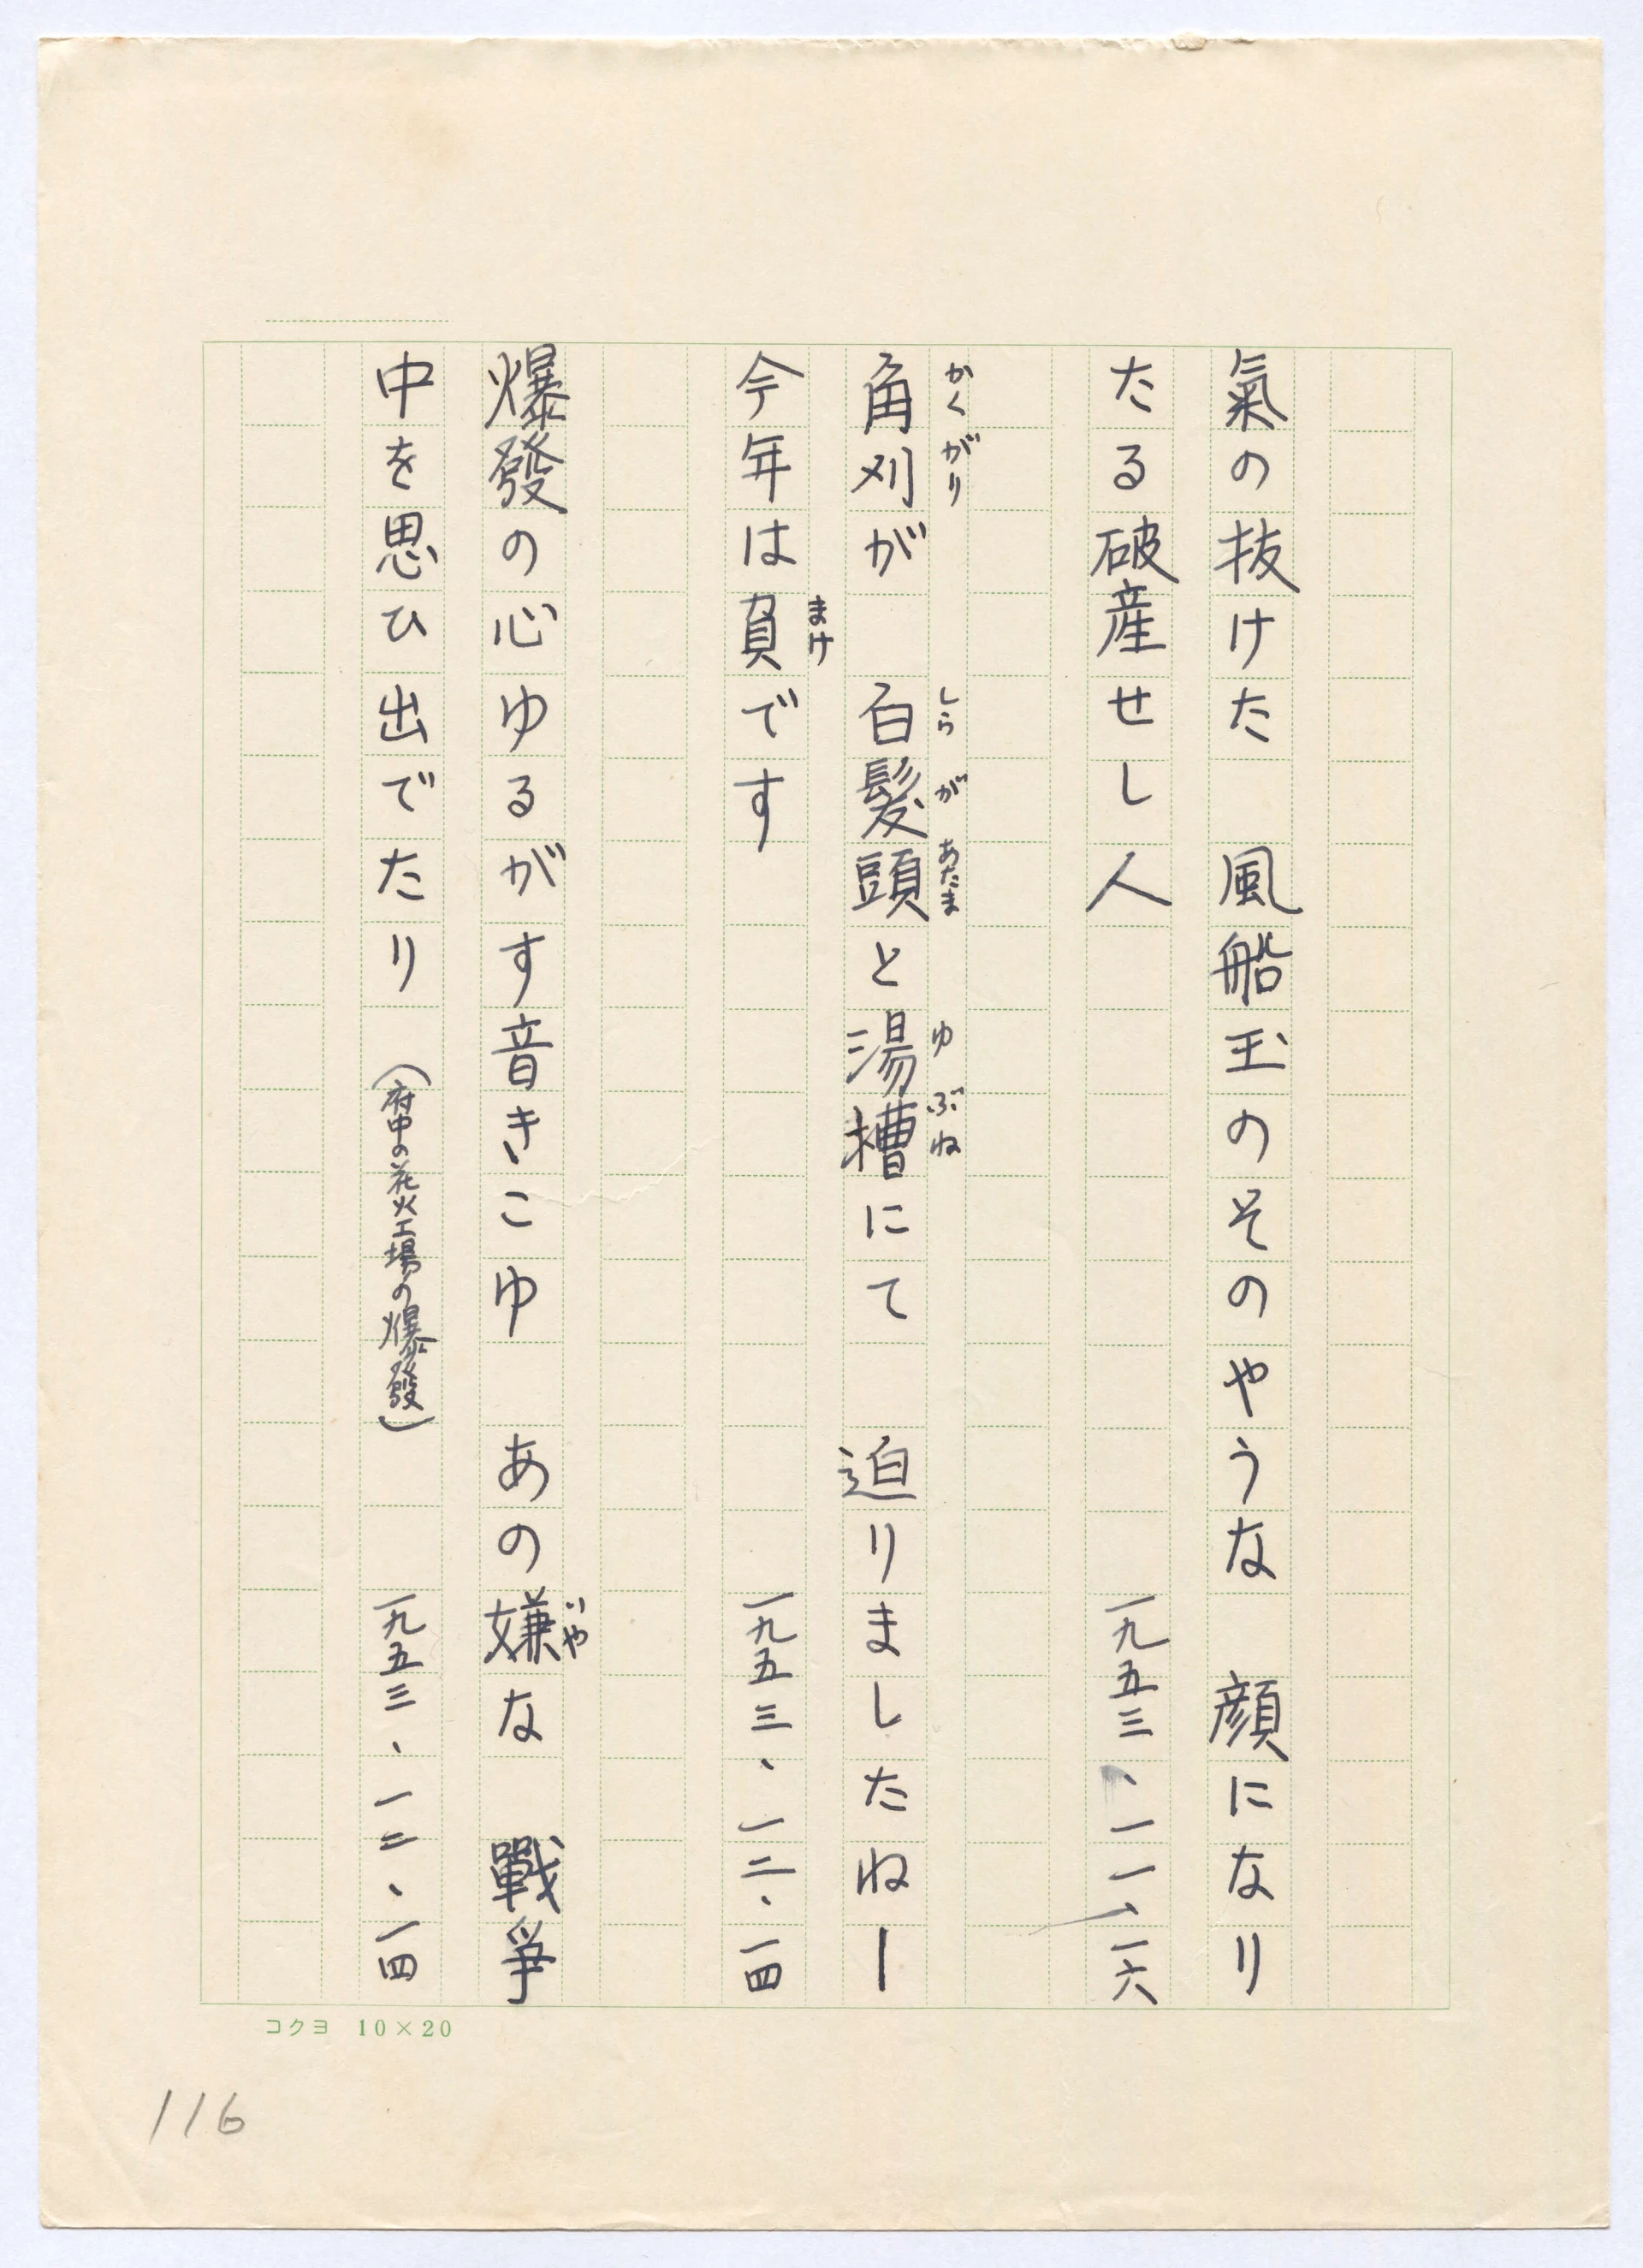 氣の抜けた　風船玉のそのやうな　顔になり
たる破産せし人　一九五三、一一、一六
かくがり　しらが　あたま　ゆぶね
角刈が　白髪頭と湯槽にて　迫りましたねー
まけ
今年は負です　一九五三、一二、一四
いや
爆發の心ゆるがす音きこゆ　あの嫌な　戰爭
中を思ひ出でたり（府中の花火工場の爆發）　一九五三、一二、一四
コクヨ 10×20
116